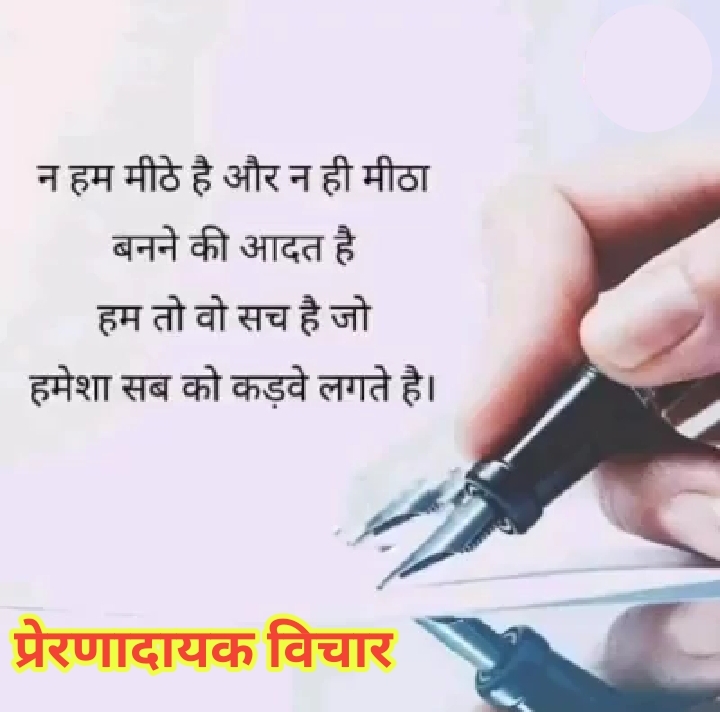 न हम मीठे है और न ही मीठा
बनने की आदत है
हम तो वो सच है जो
हमेशा सब को कड़वे लगते है।
प्रेरणादायक विचार